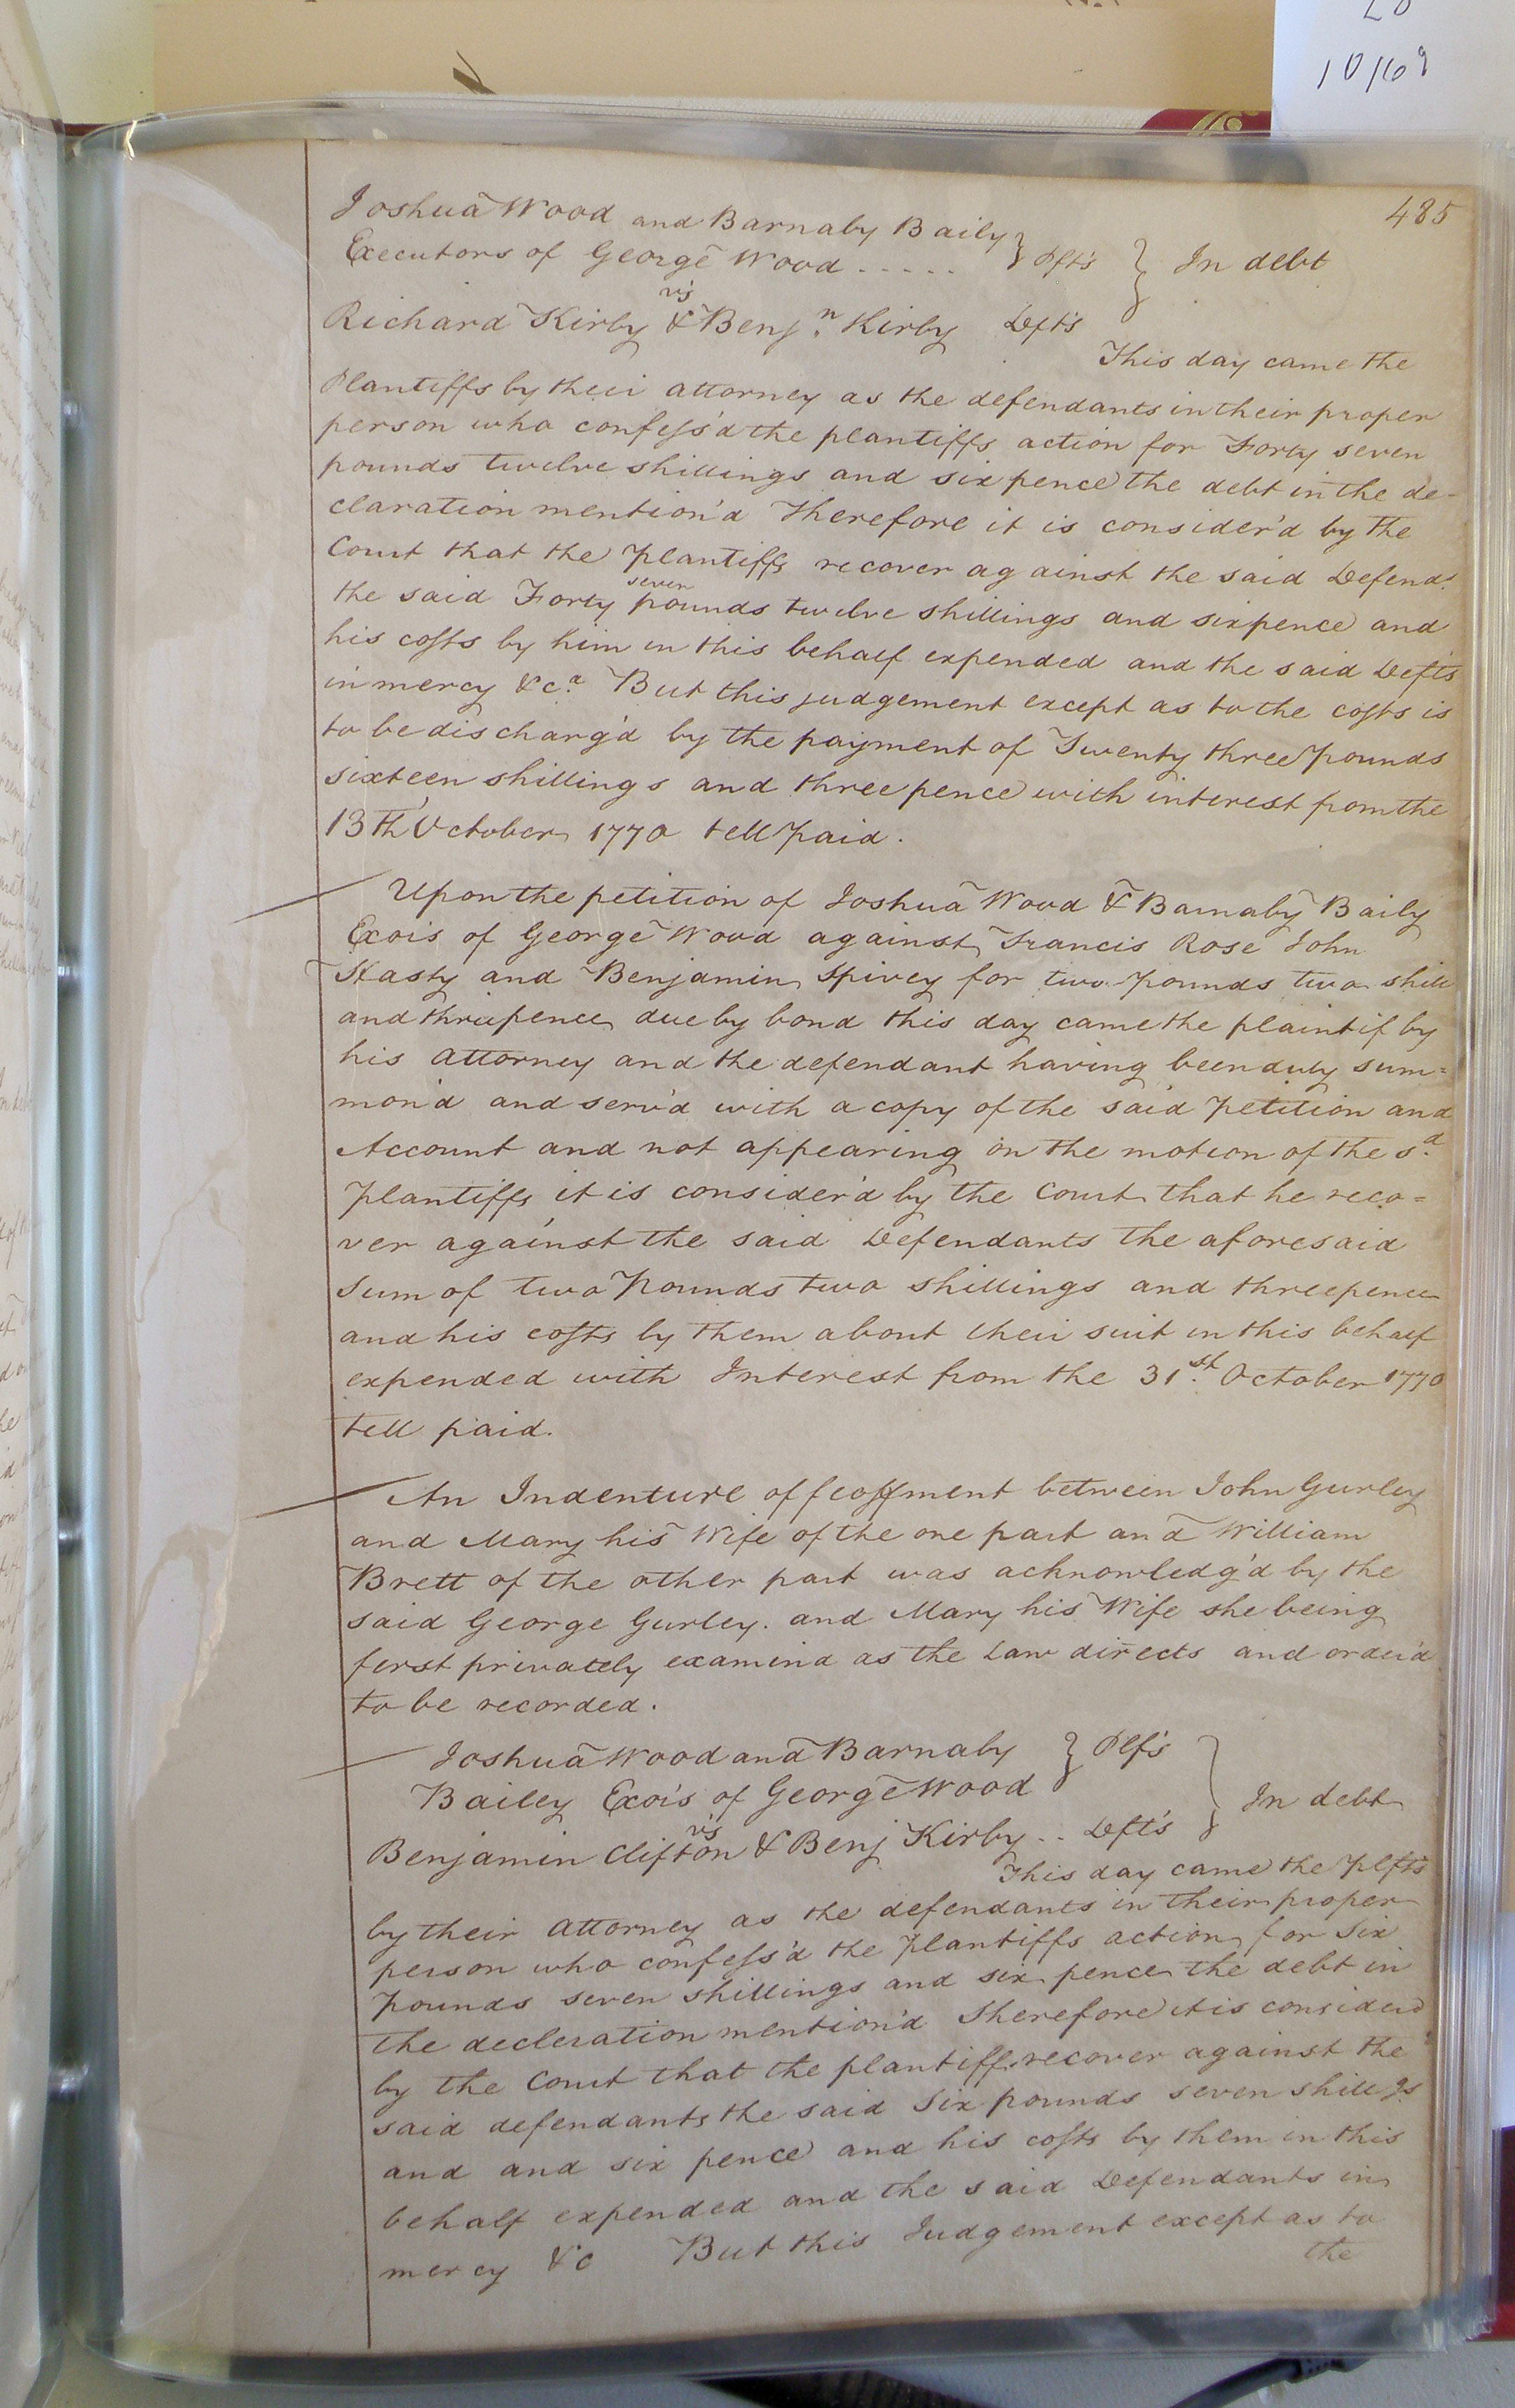 10/69
485
Joshua Wood and Barnaby Baily
Executors of George Wood ..... } Plft's } In debt
vs
Richard Kirby & Benj.n Kirby Deft's
This day came the
Plantiffs by their attorney as the defendants in their proper
person who confess'd the plantiffs action for Forty seven
pounds twelve shillings and six pence the debt in the de-
claration mention'd Therefore it is consider'd by the
Court that the plantiffs recover against the said Defend.s
seven
the said Forty pounds twelve shillings and sixpence and
his costs by him in this behalf expended and the said Deft's
in mercy &c.a But this judgement except as to the costs is
to be discharg'd by the payment of Twenty three pounds
sixteen shillings and three pence with interest from the
13th October 1770 tell paid.
Upon the petition of Joshua Wood & Barnaby Baily
Exo's of George Wood against Francis Rose John
Hasty and Benjamin Spivey for two pounds two shill
and threepence due by bond this day came the plaintif by
his attorney and the defendant having been duly sum=
mon'd and serv'd with a copy of the said petition and
Account and not appearing on the motion of the s.d
plantiffs it is consider'd by the Court that he reco=
ver against the said Defendants the aforesaid
Sum of two Pounds two shillings and threepence
and his costs by them about their suit in this behalf
expended with Interest from the 31.st October 1770
tell paid.
An Indenture of feoffment between John Gurley
and Mary his Wife of the one part and William
Brett of the other part was acknowledg'd by the
said George Gurley. and Mary his Wife she being
ferst privately examin'd as the Law directs and order'd
to be recorded.
Joshua Wood and Barnaby } Plf's
Bailey Exo's of George Wood } In debt
vs
Benjamin Clifton & Benj Kirby .. Deft's
This day came the Plft's
by their attorney as the defendants in their proper
person who confess'd the plantiffs action for Six
pounds seven shillings and six pence the debt in
the decleration mention'd Therefore it is consider'd
by the Court that the plantiffs recover against the
said defendants the said Six pounds seven shill.gs
and and six pence and his costs by them in this
behalf expended and the said Defendants in
mercy &c But this Judgement except as to
the